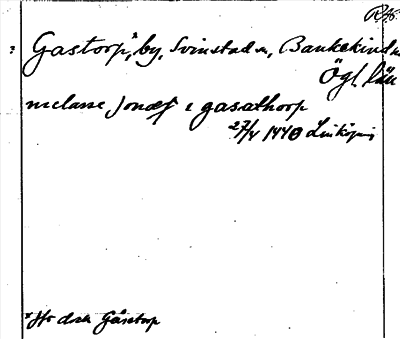 R.A.
: Gastorp*, by, Svinstad sn, Bankekind
Ögl. län
melane jonæs i gasathorp
27/4 1440 Linköping
* Hr dock Gåsetorp